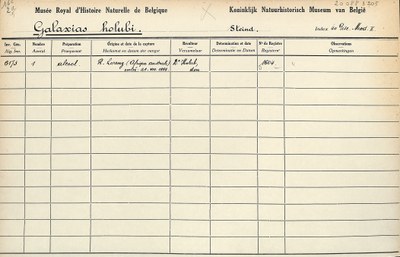 Musée Royal d'Histoire Naturelle de Belgique
Koninklijk Natuurhistorisch Museum van België
Galaxias holubi.
Steind.
Inv. Gén.
Alg. Inv.
Nombre
Aantal
Préparation
Preparaat
Origine et date de la capture
Herkomst en datum der vangst
Récolteur
Verzamelaar
Détermination et date
Determinatie en Datum
N° du Registre
Registernr
Observations
Opmerkingen
1
alcool
(Afrique centrale)
Dr Holub,
don
1604